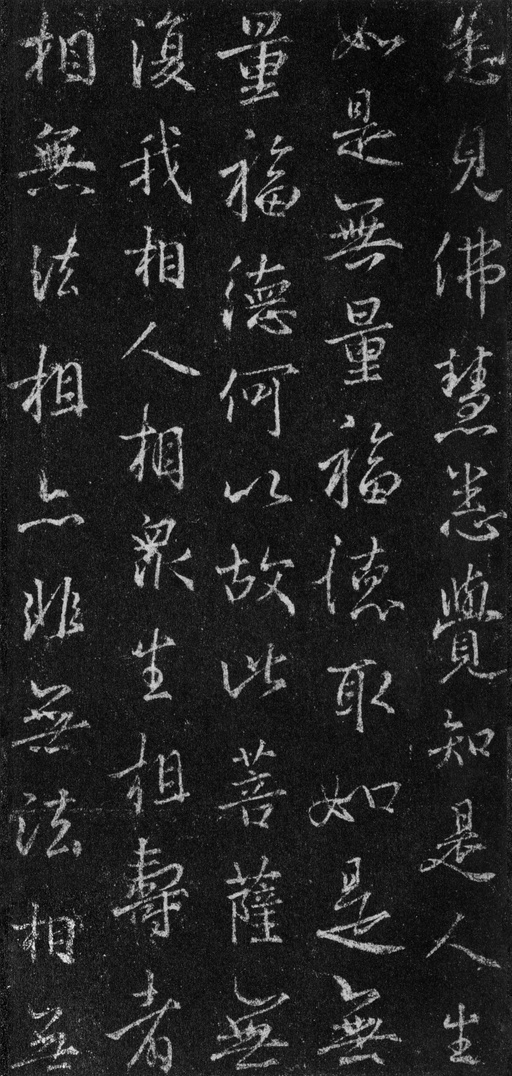 悉見佛慧悉覺知是人生
如是無量福德取如是無
量福德何以故此菩薩無
復我相人相衆生相壽者
相無法相亦非無法相無